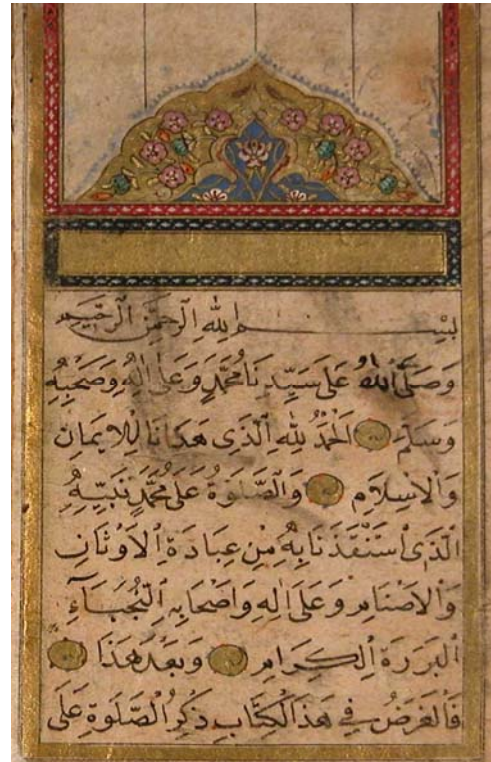 بِسْمِ اللهِ الرَّحْمَنِ الرَّحِيمِ
وَصَلَّى اللهُ عَلَى سَيِّدِنَا مُحَمَّدٍ وَعَلَى اٰلِهِ وَصَحْبِهِ
وَسَلَّمَ اَلْحَمْدُ لِلّٰهِ الَّذِى هَدَانَا لِلْاِيمَانِ
وَالْاِسْلَامِ وَالصَّلٰوةُ عَلَى مُحَمَّدٍ نَبِيِّهِ
الَّذِى اسْتَنْقَذَنَا بِهِ مِنْ عِبَادَةِ الْاَوْثَانِ
وَالْاَصْنَامِ وَعَلَى اٰلِهِ وَاَصْحَابِهِ النُّجَبَاءِ
الْبَرَرَةِ الْكِرَامِ وَبَعْدَ هَذَا
فَالْغَرَضُ فِى هَذَا الْكِتَابِ ذِكْرُ الصَّلٰوةِ عَلَى